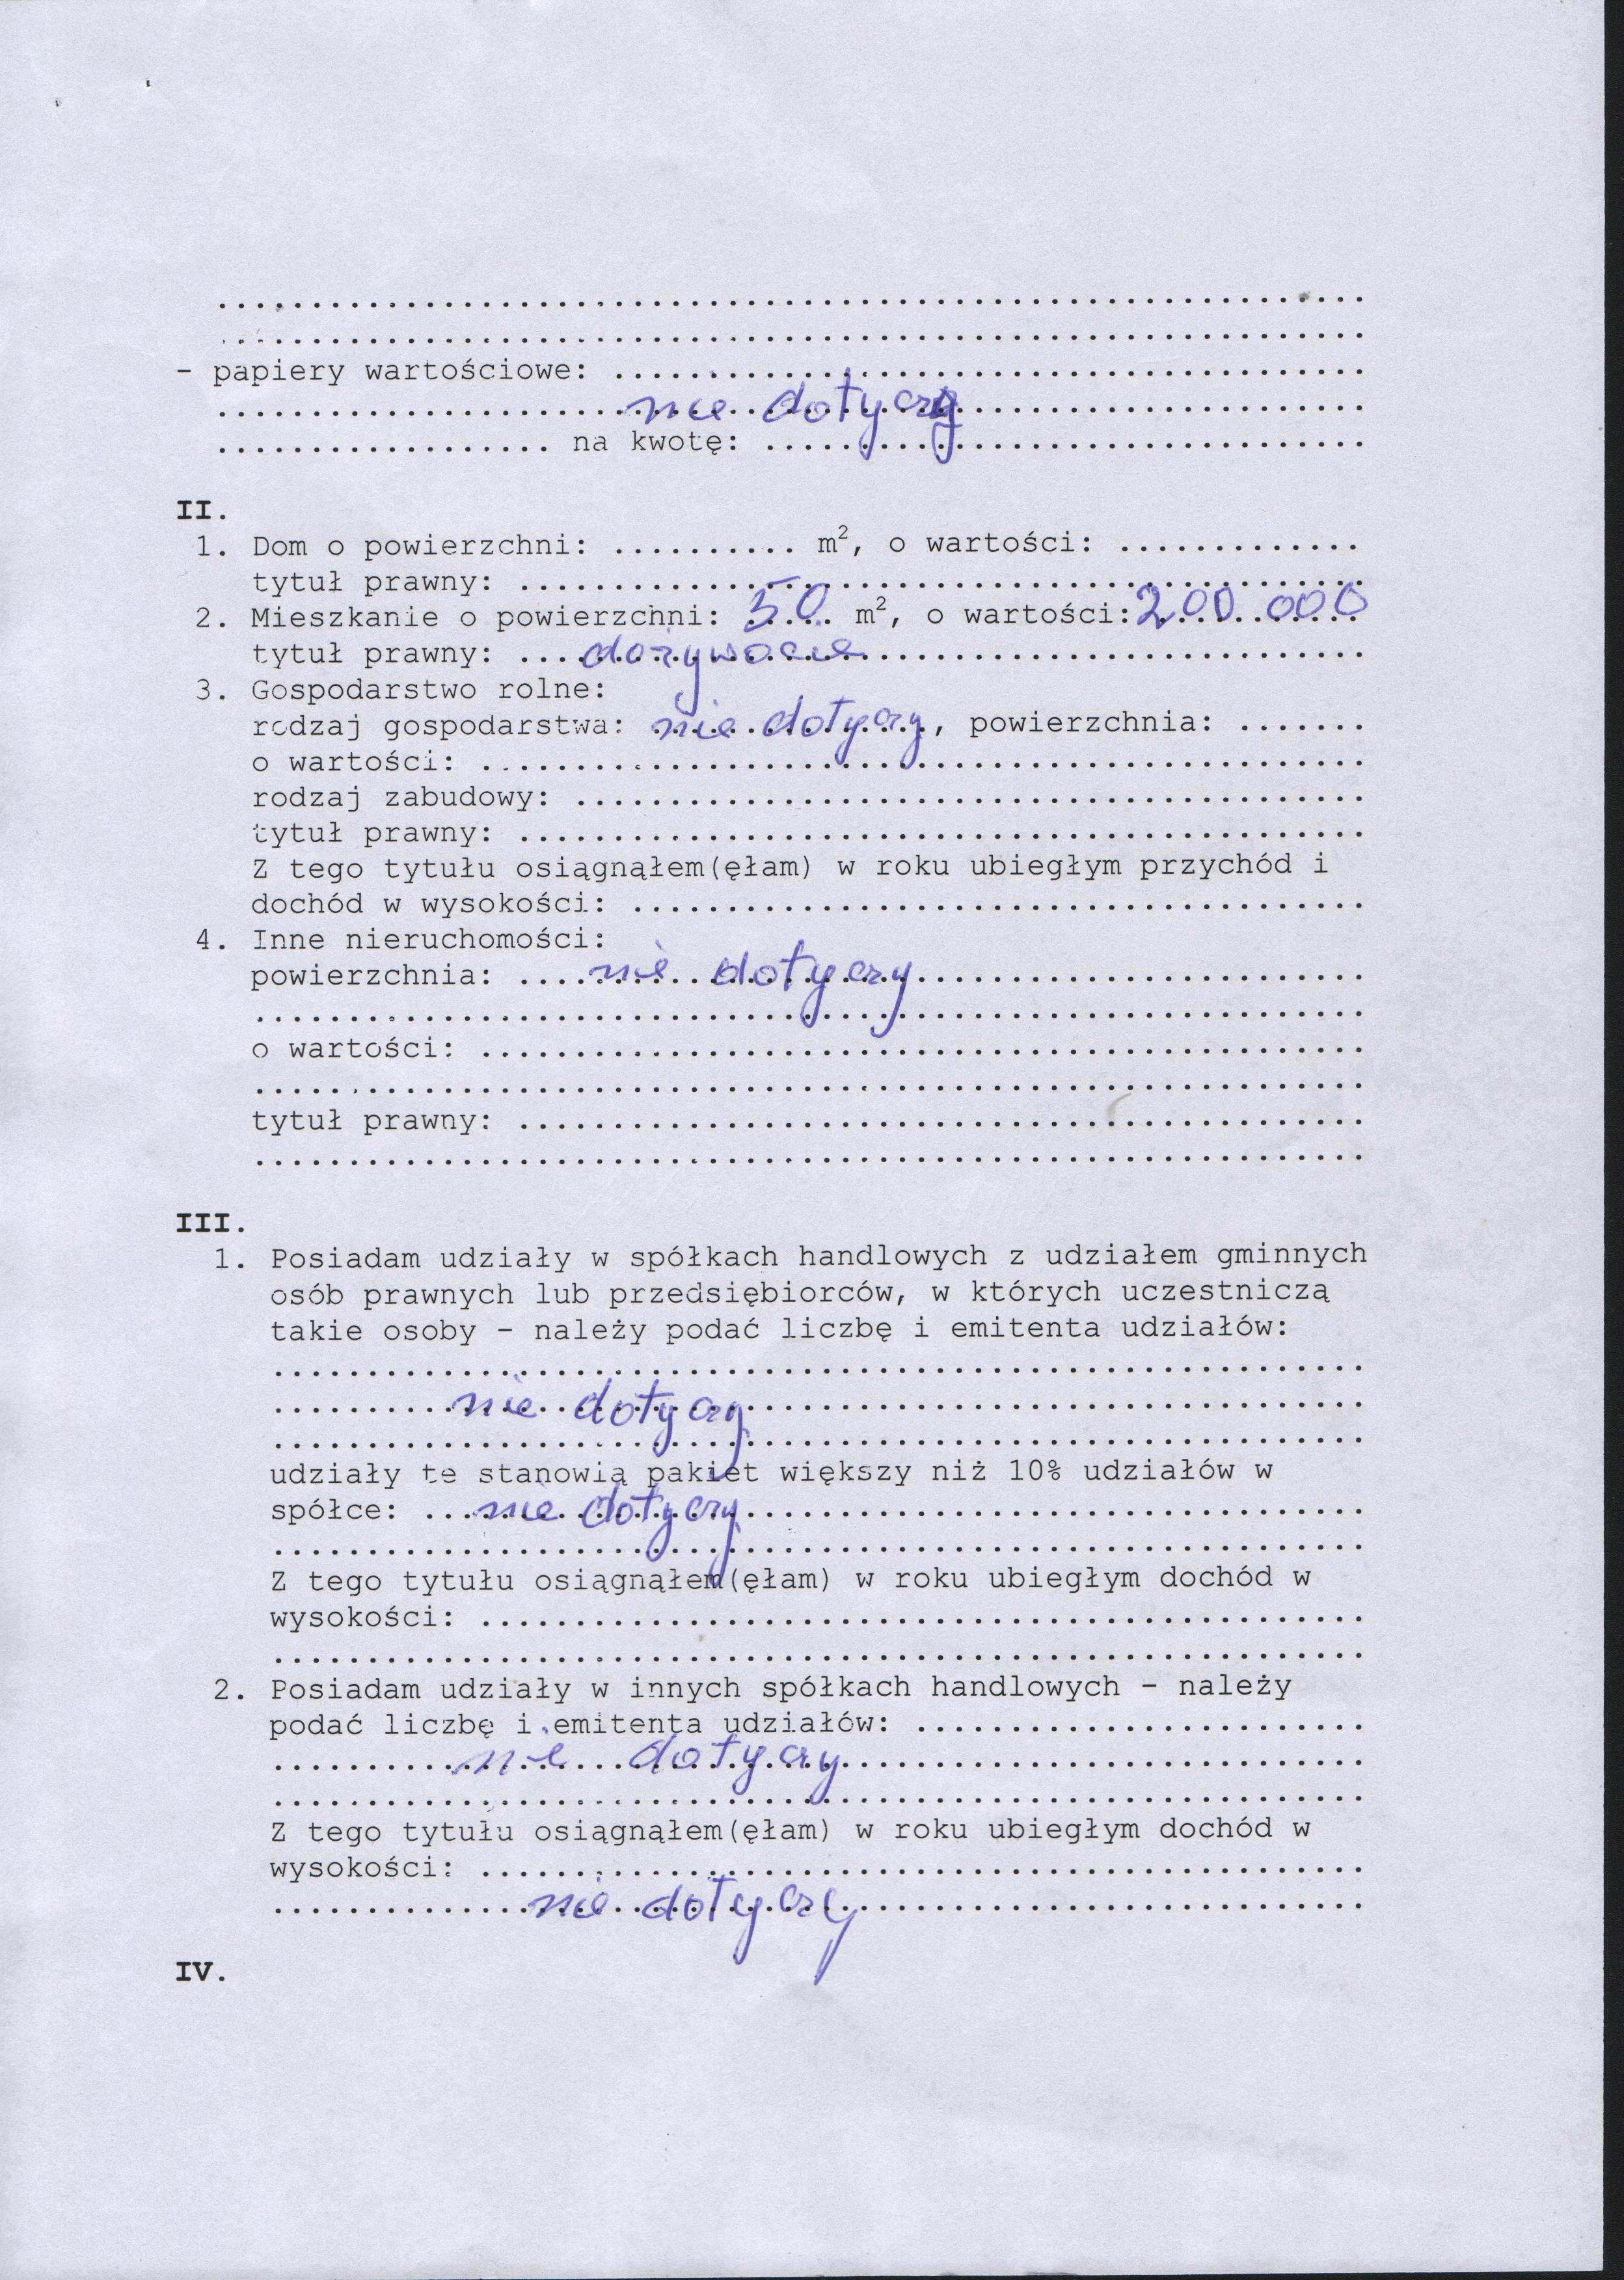 ............................................................
............................................................
- papiery wartościowe: ........................................
nie dotyczy
.................. na kwotę: ................................
II.
1. Dom o powierzchni: .......... m², o wartości: .............
tytuł prawny: .............................................
2. Mieszkanie o powierzchni: 50 m², o wartości: 200.000
tytuł prawny: dożywocie
3. Gospodarstwo rolne:
rodzaj gospodarstwa: nie dotyczy, powierzchnia: .......
o wartości: ...............................................
rodzaj zabudowy: ..........................................
tytuł prawny: .............................................
Z tego tytułu osiągnąłem(ęłam) w roku ubiegłym przychód i
dochód w wysokości: .......................................
4. Inne nieruchomości:
powierzchnia: nie dotyczy
...........................................................
o wartości: ...............................................
...........................................................
tytuł prawny: .............................................
...........................................................
III.
1. Posiadam udziały w spółkach handlowych z udziałem gminnych
osób prawnych lub przedsiębiorców, w których uczestniczą
takie osoby - należy podać liczbę i emitenta udziałów:
..........................................................
nie dotyczy
..........................................................
udziały te stanowią pakiet większy niż 10% udziałów w
spółce: nie dotyczy
..........................................................
Z tego tytułu osiągnąłem(ęłam) w roku ubiegłym dochód w
wysokości: ...............................................
..........................................................
2. Posiadam udziały w innych spółkach handlowych - należy
podać liczbę i emitenta udziałów: ........................
nie dotyczy
..........................................................
Z tego tytułu osiągnąłem(ęłam) w roku ubiegłym dochód w
wysokości: ...............................................
nie dotyczy
IV.